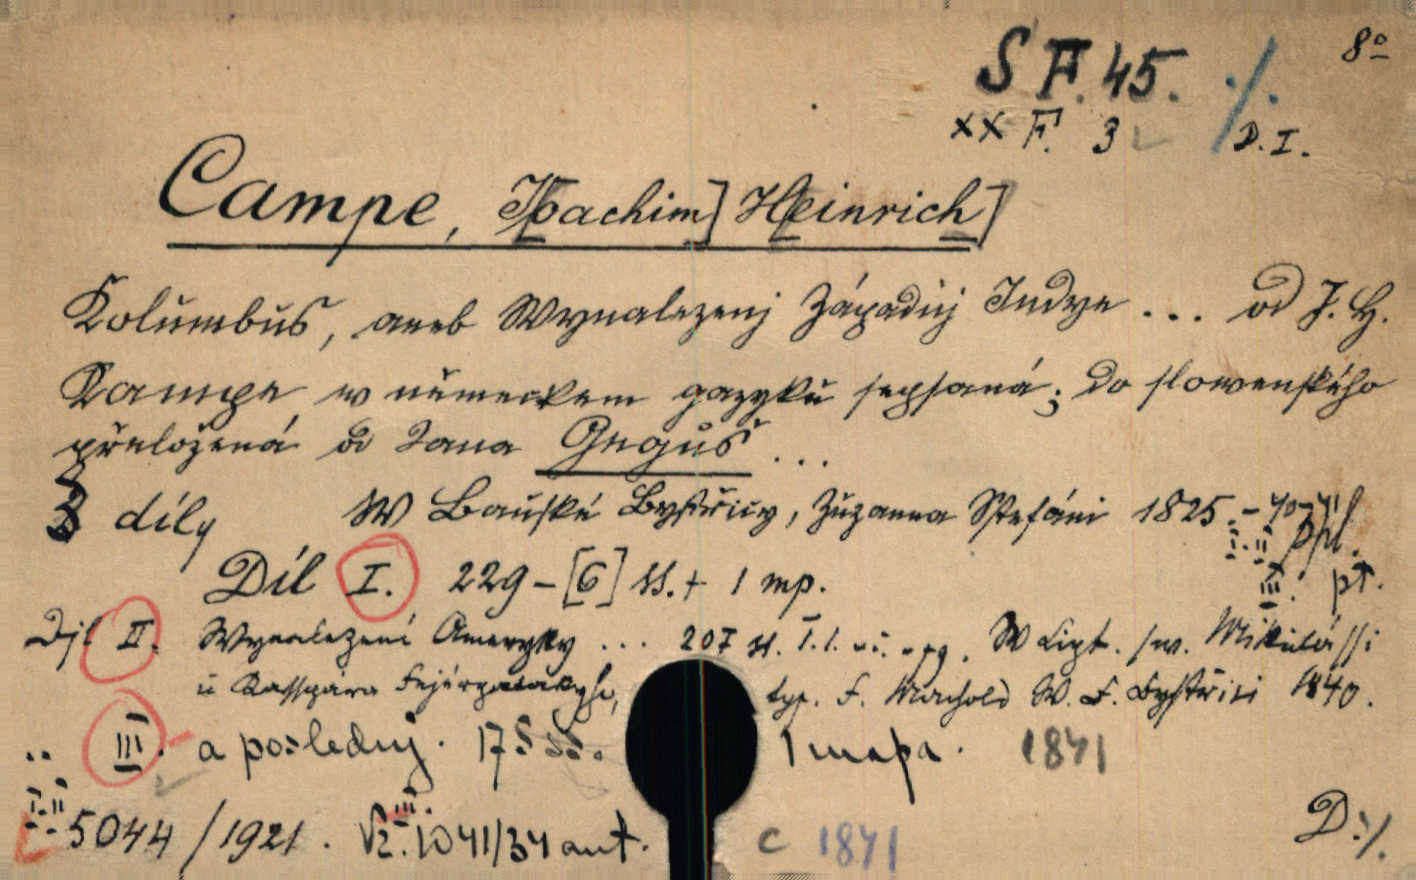 8º
S F. 45. ·/.
XX F. 3 D. I.
Campe, J[oachim] H[einrich]
Kolumbus, aneb Wynalezenj Západnj Indye ... od J. H.
Kampe w německem gazyku sepsaná; do slowenského
přeložená od Jana Gegus ...
3 díly W Banské Bystřicy, Zuzanna Stefáni 1825.-40-41
I.-II. ppl.
III. pt.
Díl I. 229-[6] ss.+ 1 mp.
Djl II. Wynalezení Ameryky ... 207 st. W Lipt. sw. Mikulássi
u Kasspára Fejérpatakyho, typ. F. Machold W. B. Bystřici 1840.
III. a poslednj. 175 ss. 1 mapa. 1841
I.-II. 5044/1921. III. 1041/34 ant. c 1841
D:/.